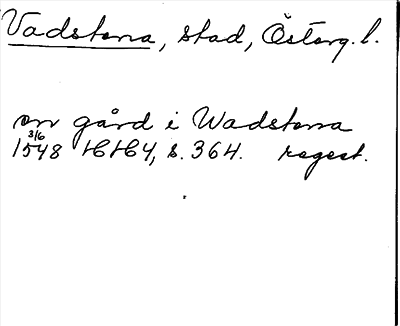 Vadstena, stad, Österg. l.
en gård i Wadstena
3/6
1548 HH4, s. 364. regest.